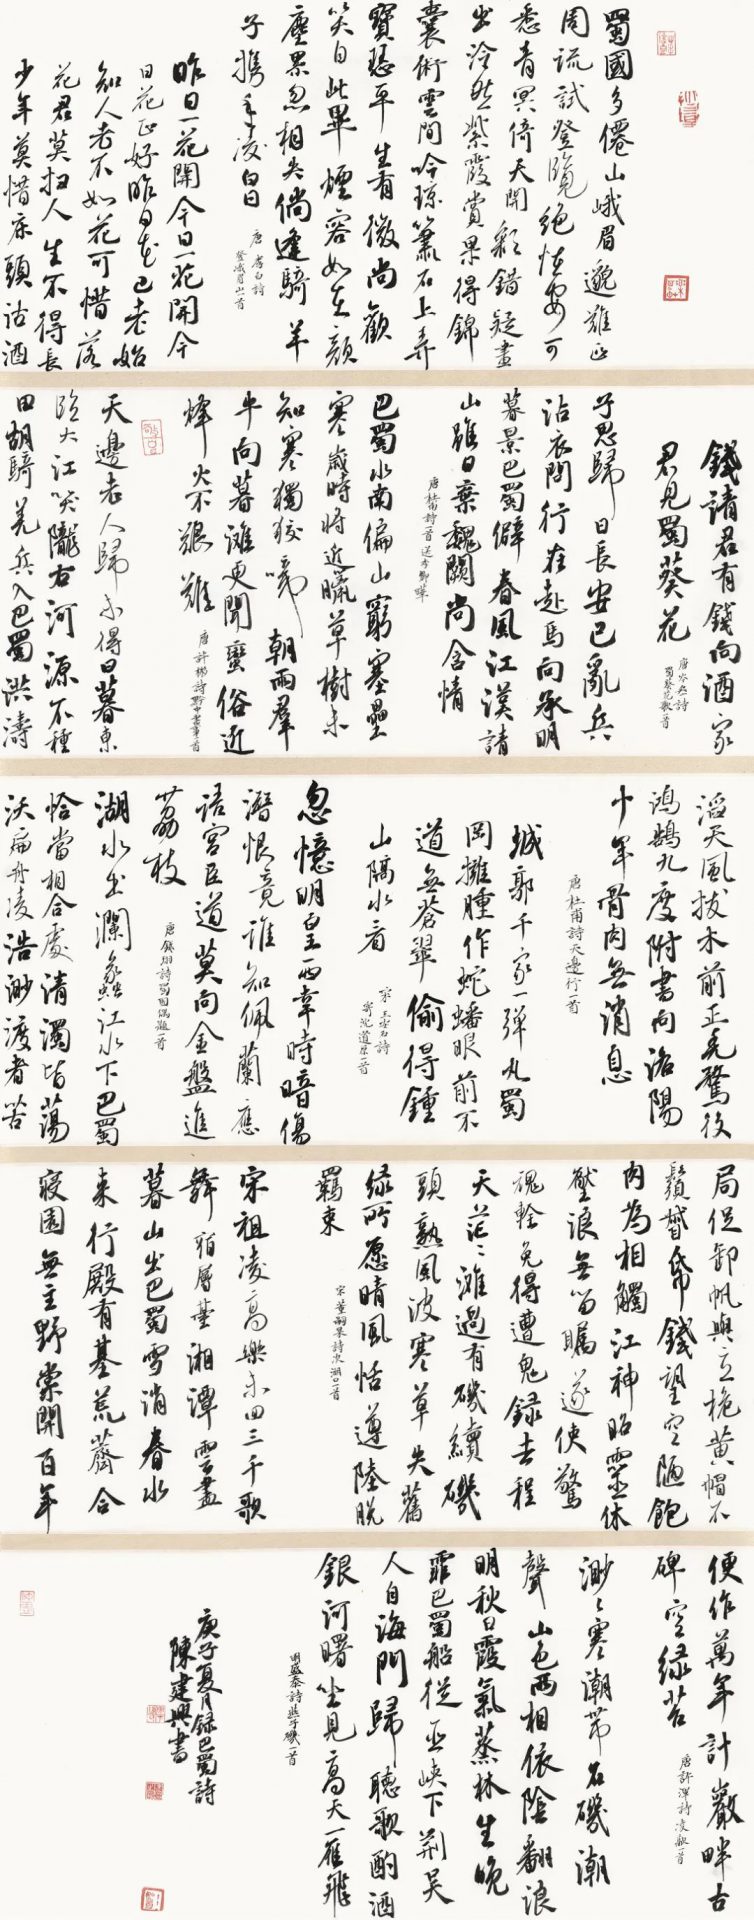 蜀國多僊山峨眉邈難匹
周流試登覽絕怪安可
悉青冥倚天開彩錯疑畫
出泠然紫霞賞果得錦
囊術雲間吟瓊簫石上弄
寶瑟平生有微尚歡
笑自此畢煙容如在顏
塵累忽相失儻逢騎羊
子攜手淩白日
唐 李白詩
登峨眉山一首
昨日一花開今日一花開今
日花正好昨日花已老始
知人老不如花可惜落
花君莫掃人生不得長
少年莫惜床頭沽酒
錢請君有錢向酒家
君見蜀葵花
唐岑參詩
蜀葵花歌一首
子思歸日長安已亂兵
沾衣問行在赴馬向承明
暮景巴蜀僻春風江漢清
山雖自棄魏闕尚含情
唐杜甫詩一首 送李卿曄
巴蜀水南偏山窮塞壘
寒歲時將近臘草樹未
知寒獨狖啼朝雨群
牛向暮灘更聞蠻俗近
烽火不艱難
唐許棠詩黔中書事一首
天邊老人歸未得日暮東
臨大江哭隴右河源不種
田胡騎羌兵入巴蜀洪濤
滔天風拔木前飛禿鶖後
鴻鵠九度附書向洛陽
十年骨肉無消息
唐杜甫詩天邊行一首
城郭千家一彈丸蜀
岡擁腫作蛇蟠眼前不
道無蒼翠偷得鍾
山隔水看
宋 王安石詩
寄沈道原一首
忽憶明皇西幸時暗傷
潛恨竟誰知佩蘭應
語宮臣道莫向金盤進
荔枝
唐錢珝詩蜀國偶題一首
湖水出瀾蠡江水下巴蜀
恰當相合處清濁皆蕩
沃扁舟凌浩渺渡者苦
局促卸帆與立桅黃帽不
鬚督紙錢望空陋飽
肉為相觸江神昭靈休
壓浪無留矚遂使驚
魂輕免得遭鬼錄去程
天茫々灘過有磯續磯
頭熟風波寒草失舊
綠所愿晴風恬遵陸脫
羈束
宋董嗣杲詩次湖口一首
宋祖凌高樂未回三千歌
舞宿層臺湘潭雲盡
暮山出巴蜀雪消春水
來行殿有基荒薺合
寢園無主野棠開百年
便作萬年計巖畔古
碑空綠苔
唐許渾詩凌歊一首
渺々寒潮帶石磯潮
聲山色兩相依陰翻浪
明秋日霞氣蒸林生晚
霏巴蜀船從巫峽下荊吳
人自海門歸聽歌酌酒
銀河曙坐見高天一雁飛
明盛泰詩燕子磯一首
庚子夏月錄巴蜀詩
陳建興書